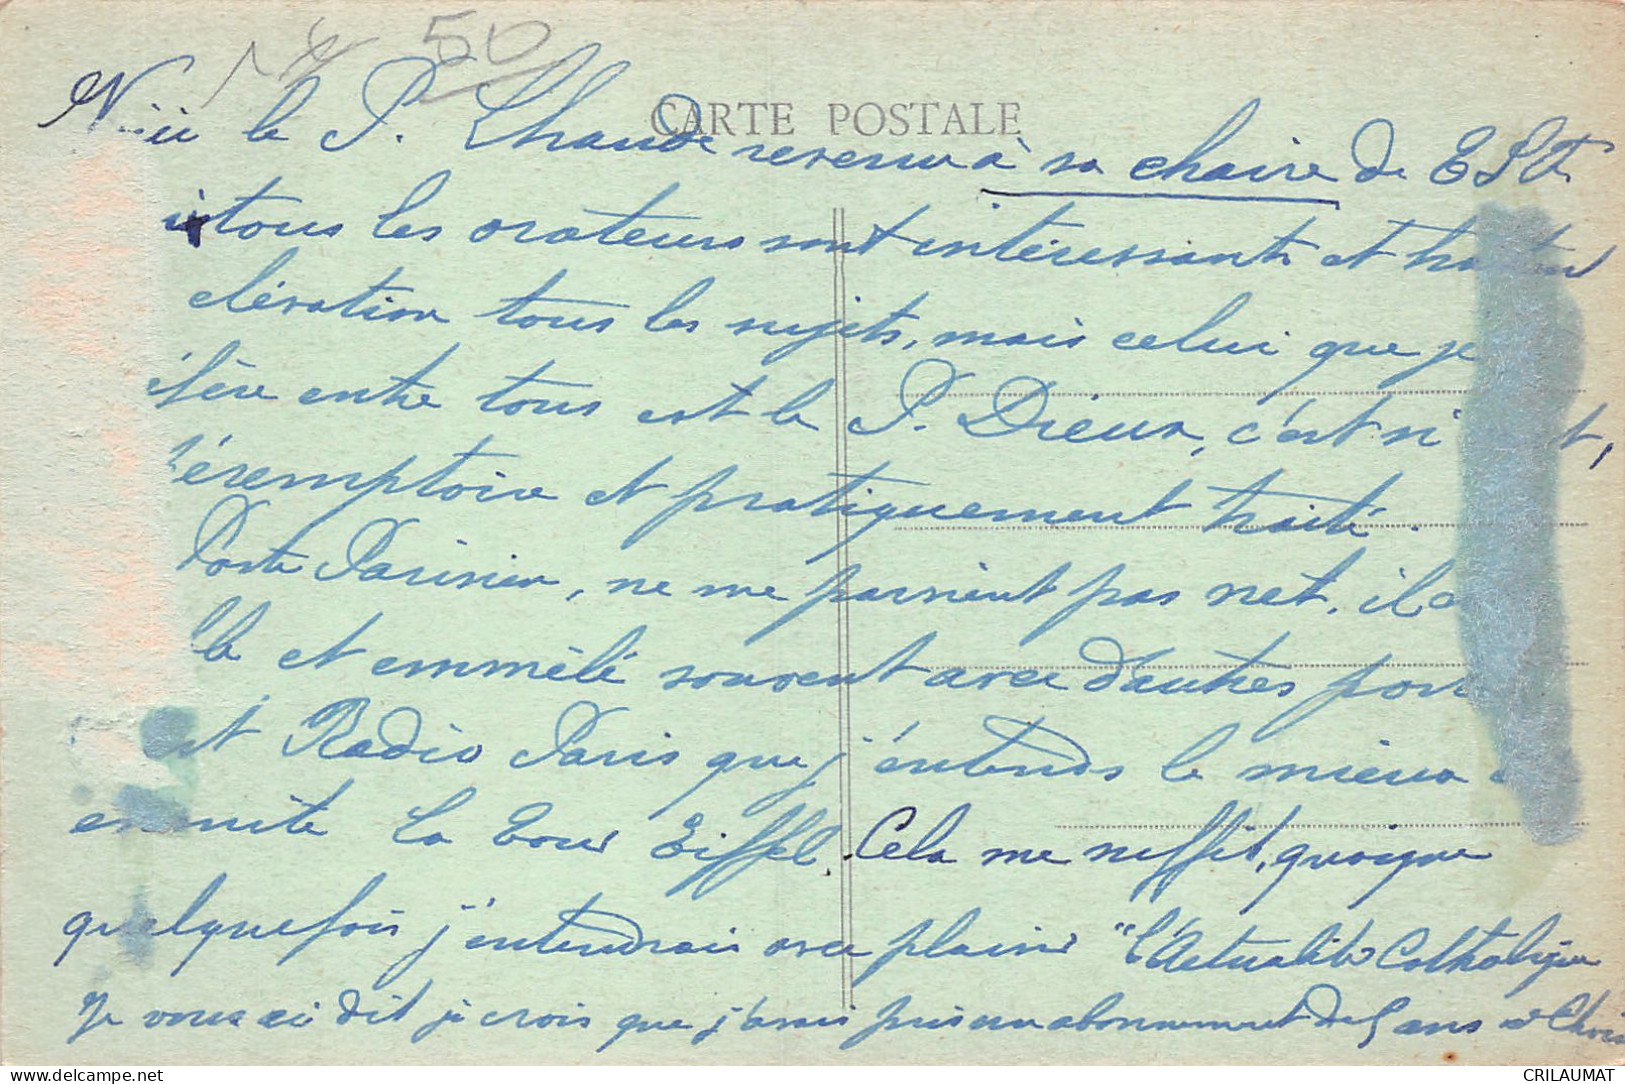 50
CARTE POSTALE
le P. Lhande revenu à sa chaire de
tous les orateurs sont intéressants et
élévation tous les sujets, mais celui que je
entre tous est le P. Dieux, c'est si
péremptoire et pratiquement traité.
Poste Parisien, ne me parvient pas net, il
et emmêlé souvent avec d'autres
Radio Paris que j'entends le mieux
ensuite la Tour Eiffel. Cela me suffit, quoique
quelquefois j'entendrais avec plaisir "l'Actualité Catholique
Je vous ai dit je crois que j'avais pris un abonnement de 5 ans
delcampe.net
CRILAUMAT